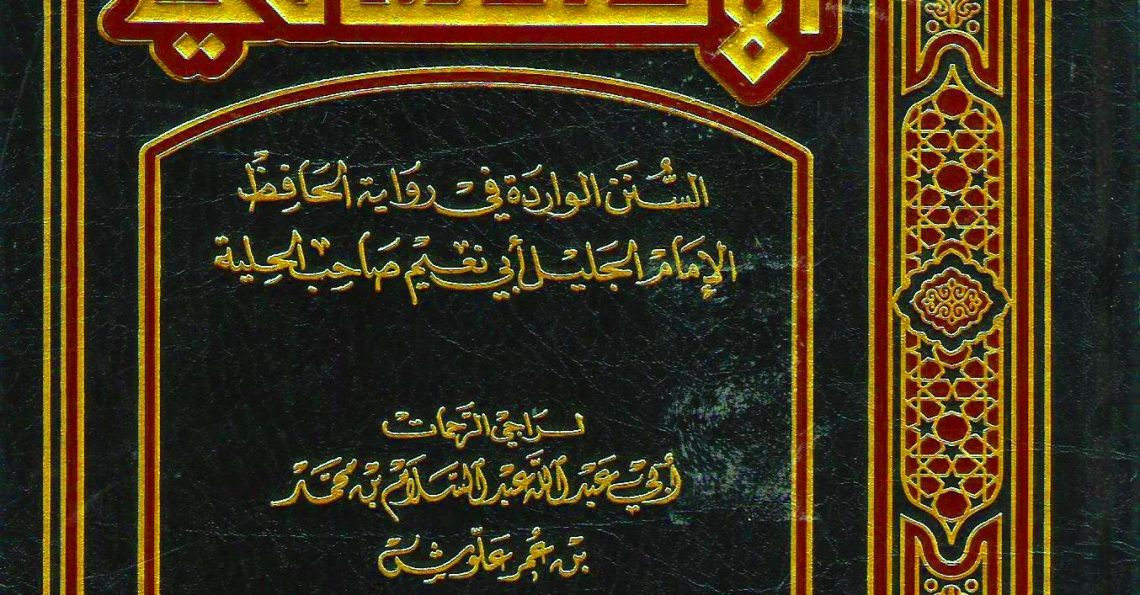 السُّنَن الواردة في رواية الحَافِظ
الإمَام الجَليل أبي نعيم صَاحِب الحِلية
لراجي الرَّحمات
أبي عَبْد اللَّه عَبْد السَّلَام بن محمَّد
بن عُمر عَلّوش